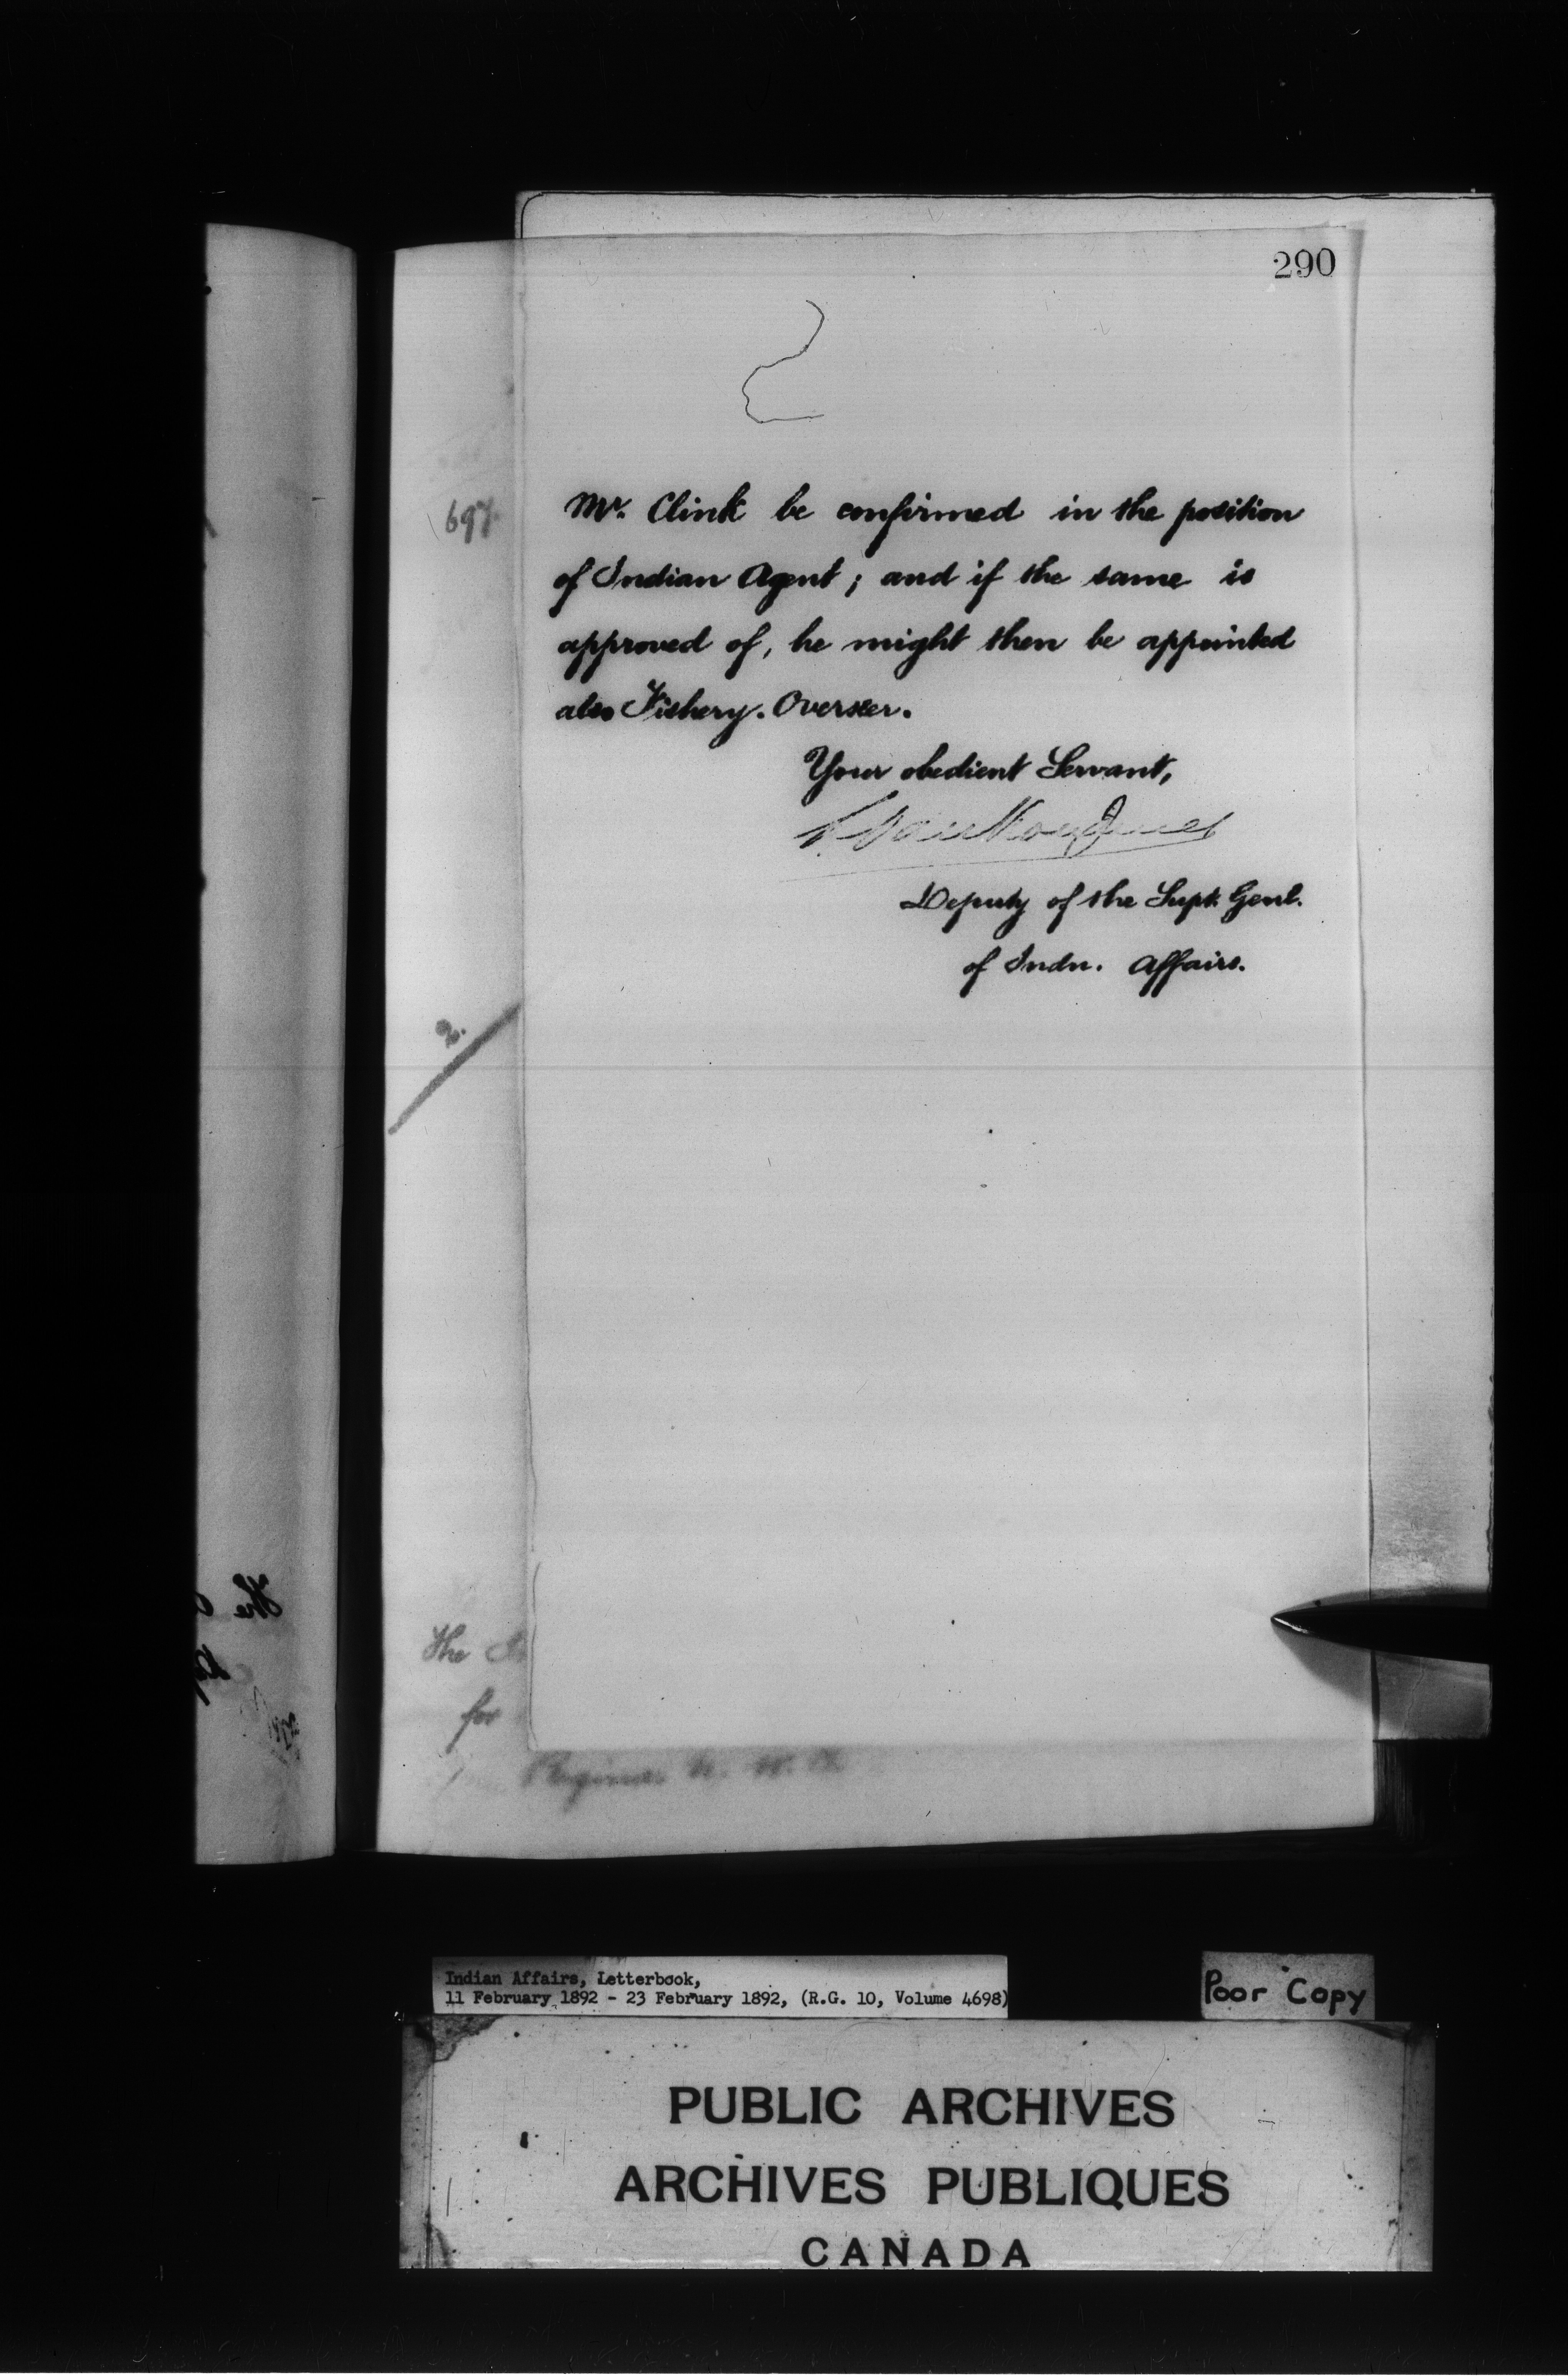 290
697.
Mr. Clink be confirmed in the position
of Indian Agent; and if the same is
approved of, he might then be appointed
also Fishery. Overseer.
Your obedient Servant,
L. VanKoughnet
Deputy of the Supt. Genl.
of Indn. Affairs.
2.
The
for
Regina N. W. T.
Indian Affairs, Letterbook,
11 February 1892 - 23 February 1892, (R.G. 10, Volume 4698)
Poor Copy
PUBLIC ARCHIVES
ARCHIVES PUBLIQUES
CANADA